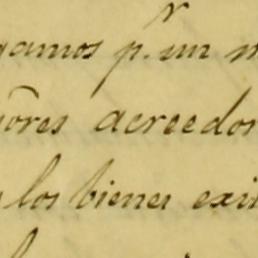 gamos p.r un m
ñores acreedor
los bienes exi